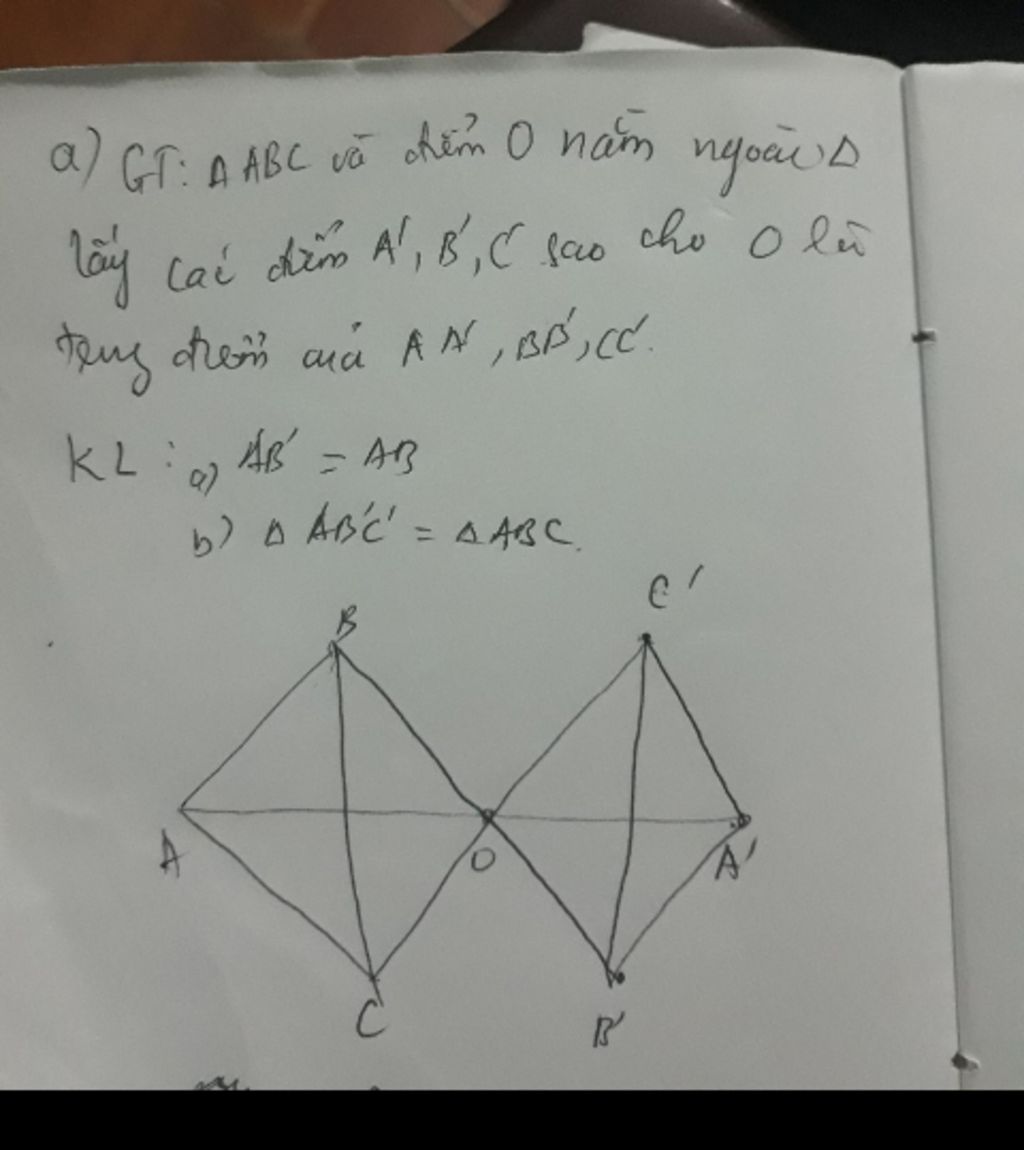 a) GT: Δ ABC và điểm O nằm ngoài Δ
lấy các điểm A', B', C' sao cho O là
trung điểm của AA', BB', CC'.
KL: a) A'B' = AB
b) Δ A'B'C' = Δ ABC.
C'
B
A
O
A'
C
B'